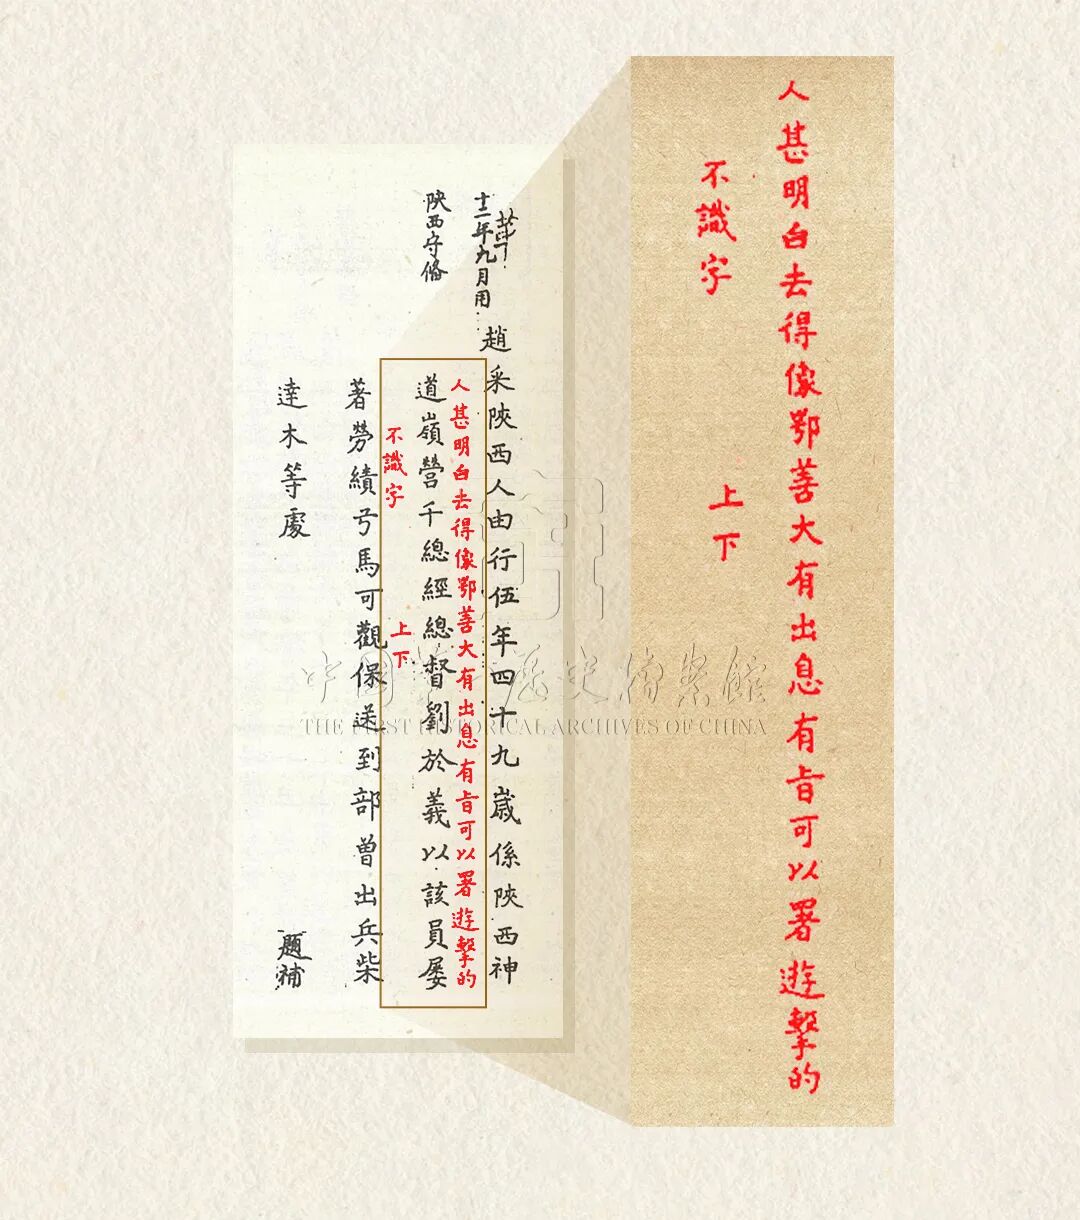 人甚明白去得像鄂善大有出息有旨可以署遊擊的
不識字
上下
十二年九月用
陝西守備
趙采陝西人由行伍年四十九歲係陝西神
人甚明白去得像鄂善大有出息有旨可以署遊擊的
道嶺營千總經總督劉於義以該員屡
不識字
上下
著勞績弓馬可觀保送到部曾出兵柴
達木等處
題補
中國第一歷史檔案館
THE FIRST HISTORICAL ARCHIVES OF CHINA